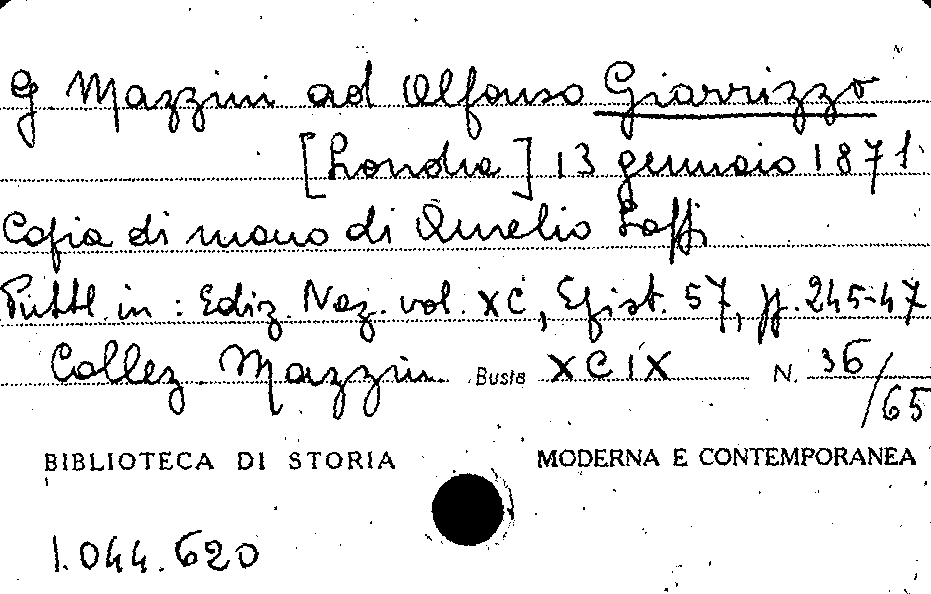 G Mazzini ad Alfonso Giarrizzo
[Londra] 13 gennaio 1871
Copia di mano di Aurelio Saffi
Pubbl. in: Ediz. Naz. vol. XC, Epist. 57, pp. 245-47
Collez. Mazzini Busta XCIX N. 36/65
BIBLIOTECA DI STORIA MODERNA E CONTEMPORANEA
1.044.620